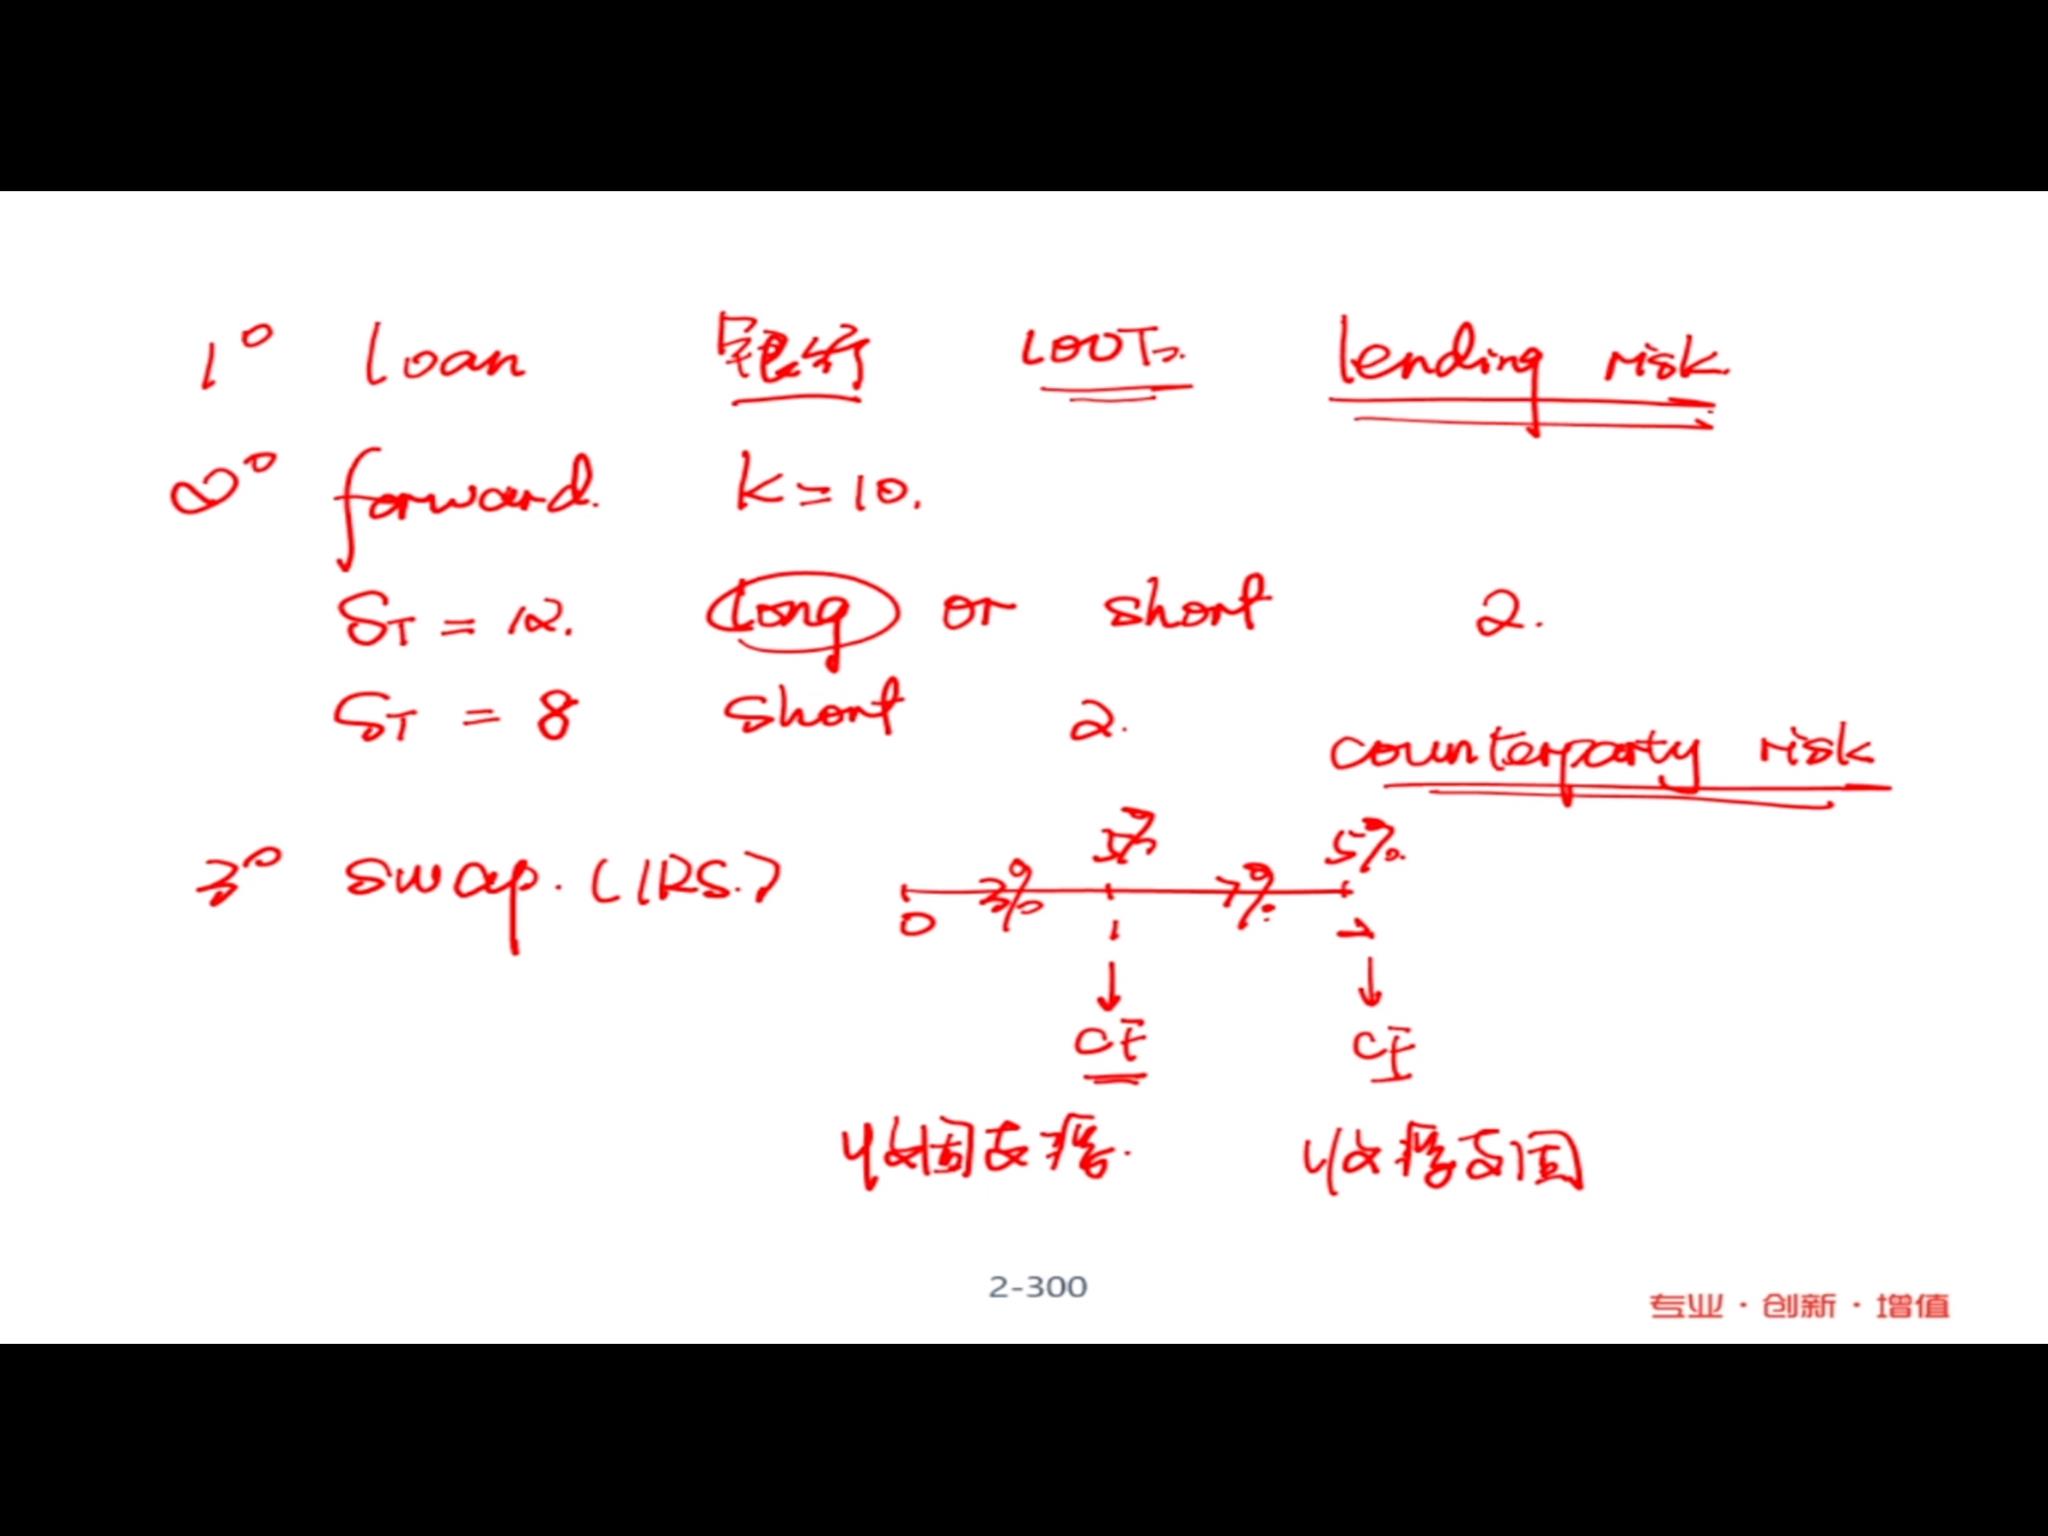 1° loan 银行 100万. lending risk.
2° forward. K=10.
ST = 12. long or short 2.
ST = 8 short 2.
counterparty risk
5% 5%.
3° swap. (IRS.) 3% 7%.
0 1 2
CF CF
收固支浮. 收浮支固
2-300
专业·创新·增值